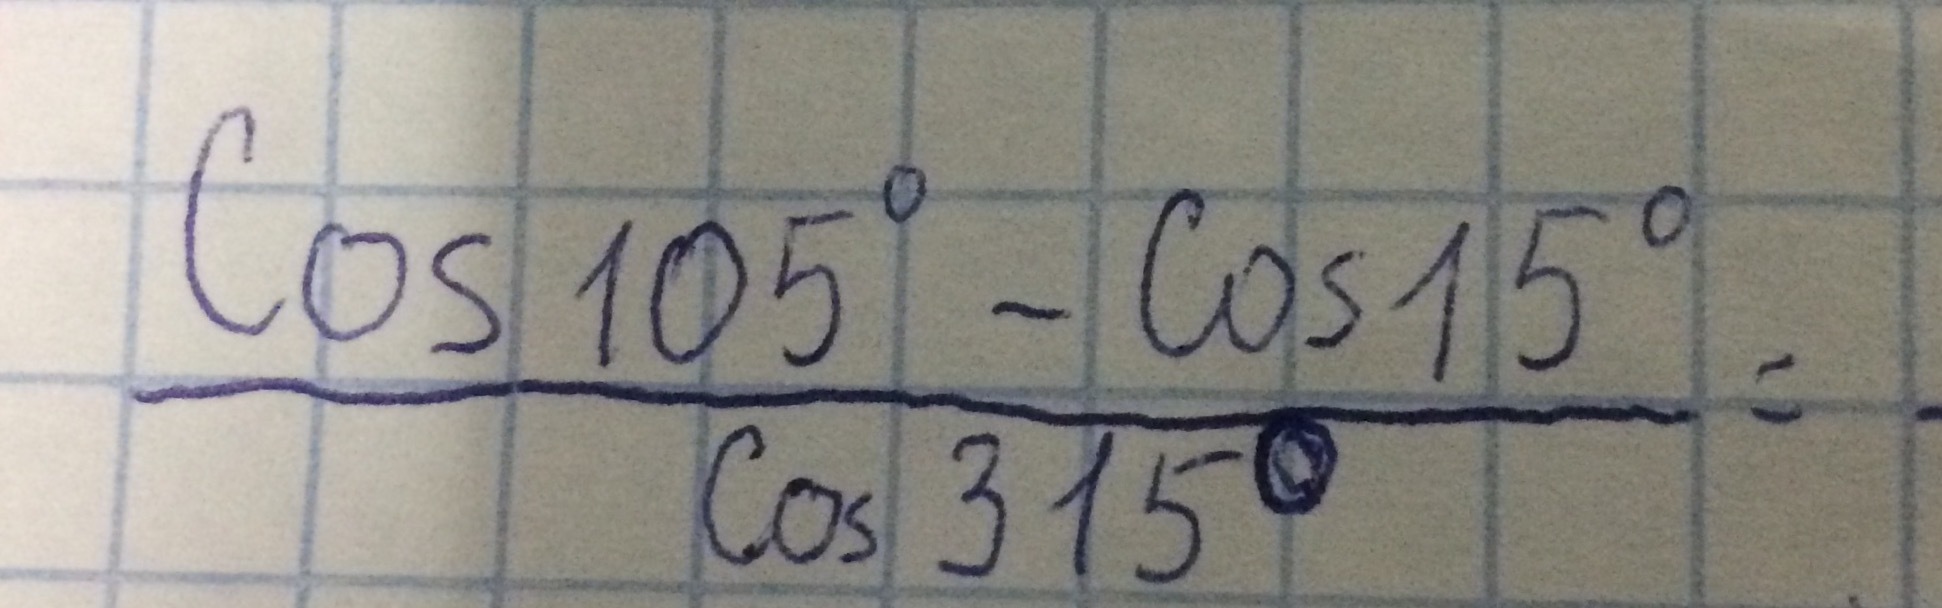 Cos 105° - Cos 15° =
Cos 315°